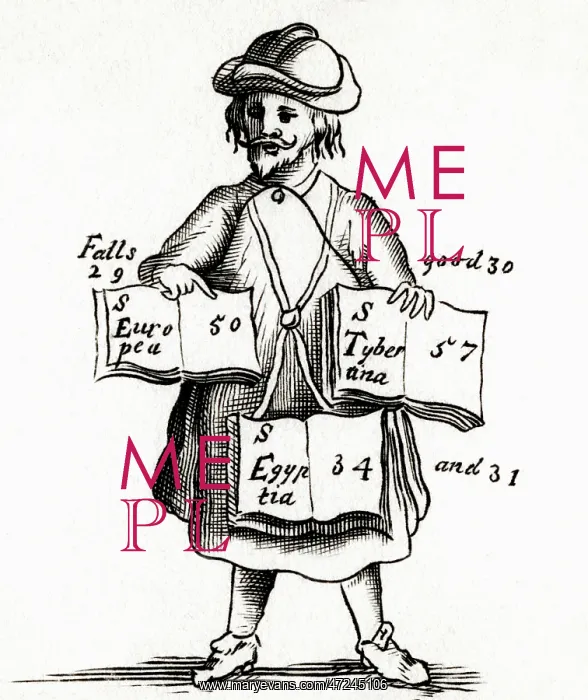 ME
PL
Falls
29
good 30
S
Euro
pea
50
S
Tyber
ina
57
ME
PL
S
Egyp
tia
34
and 31
www.maryevans.com/47245106